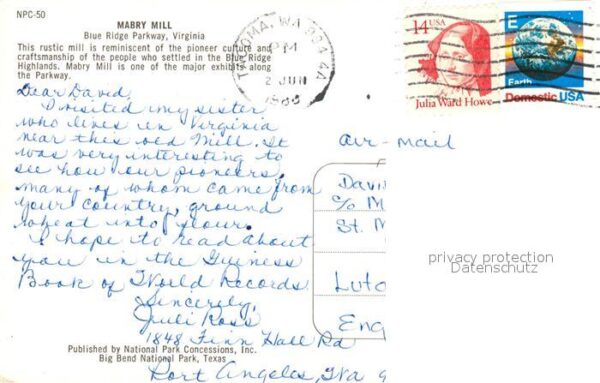 NPC-50
MABRY MILL
Blue Ridge Parkway, Virginia
This rustic mill is reminiscent of the pioneer culture and
craftsmanship of the people who settled in the Blue Ridge
Highlands. Mabry Mill is one of the major exhibits along
the Parkway.
TACOMA, WA 984 4A
PM
2 JUN
1988
14 USA
Julia Ward Howe
E
Earth
Domestic USA
Dear David,
I visited my sister
who lives in Virginia
near this old Mill. It
was very interesting to
see how our pioneers,
many of whom came from
your country, ground
wheat into flour.
I hope to read about
you in the Guiness
Book of World Records
Sincerely,
Juli Ross
1848 Finn Hall Rd
Port Angeles, Wa 9
air-mail
Davi
c/o M
St. M
Luto
Eng
privacy protection
Datenschutz
Published by National Park Concessions, Inc.
Big Bend National Park, Texas